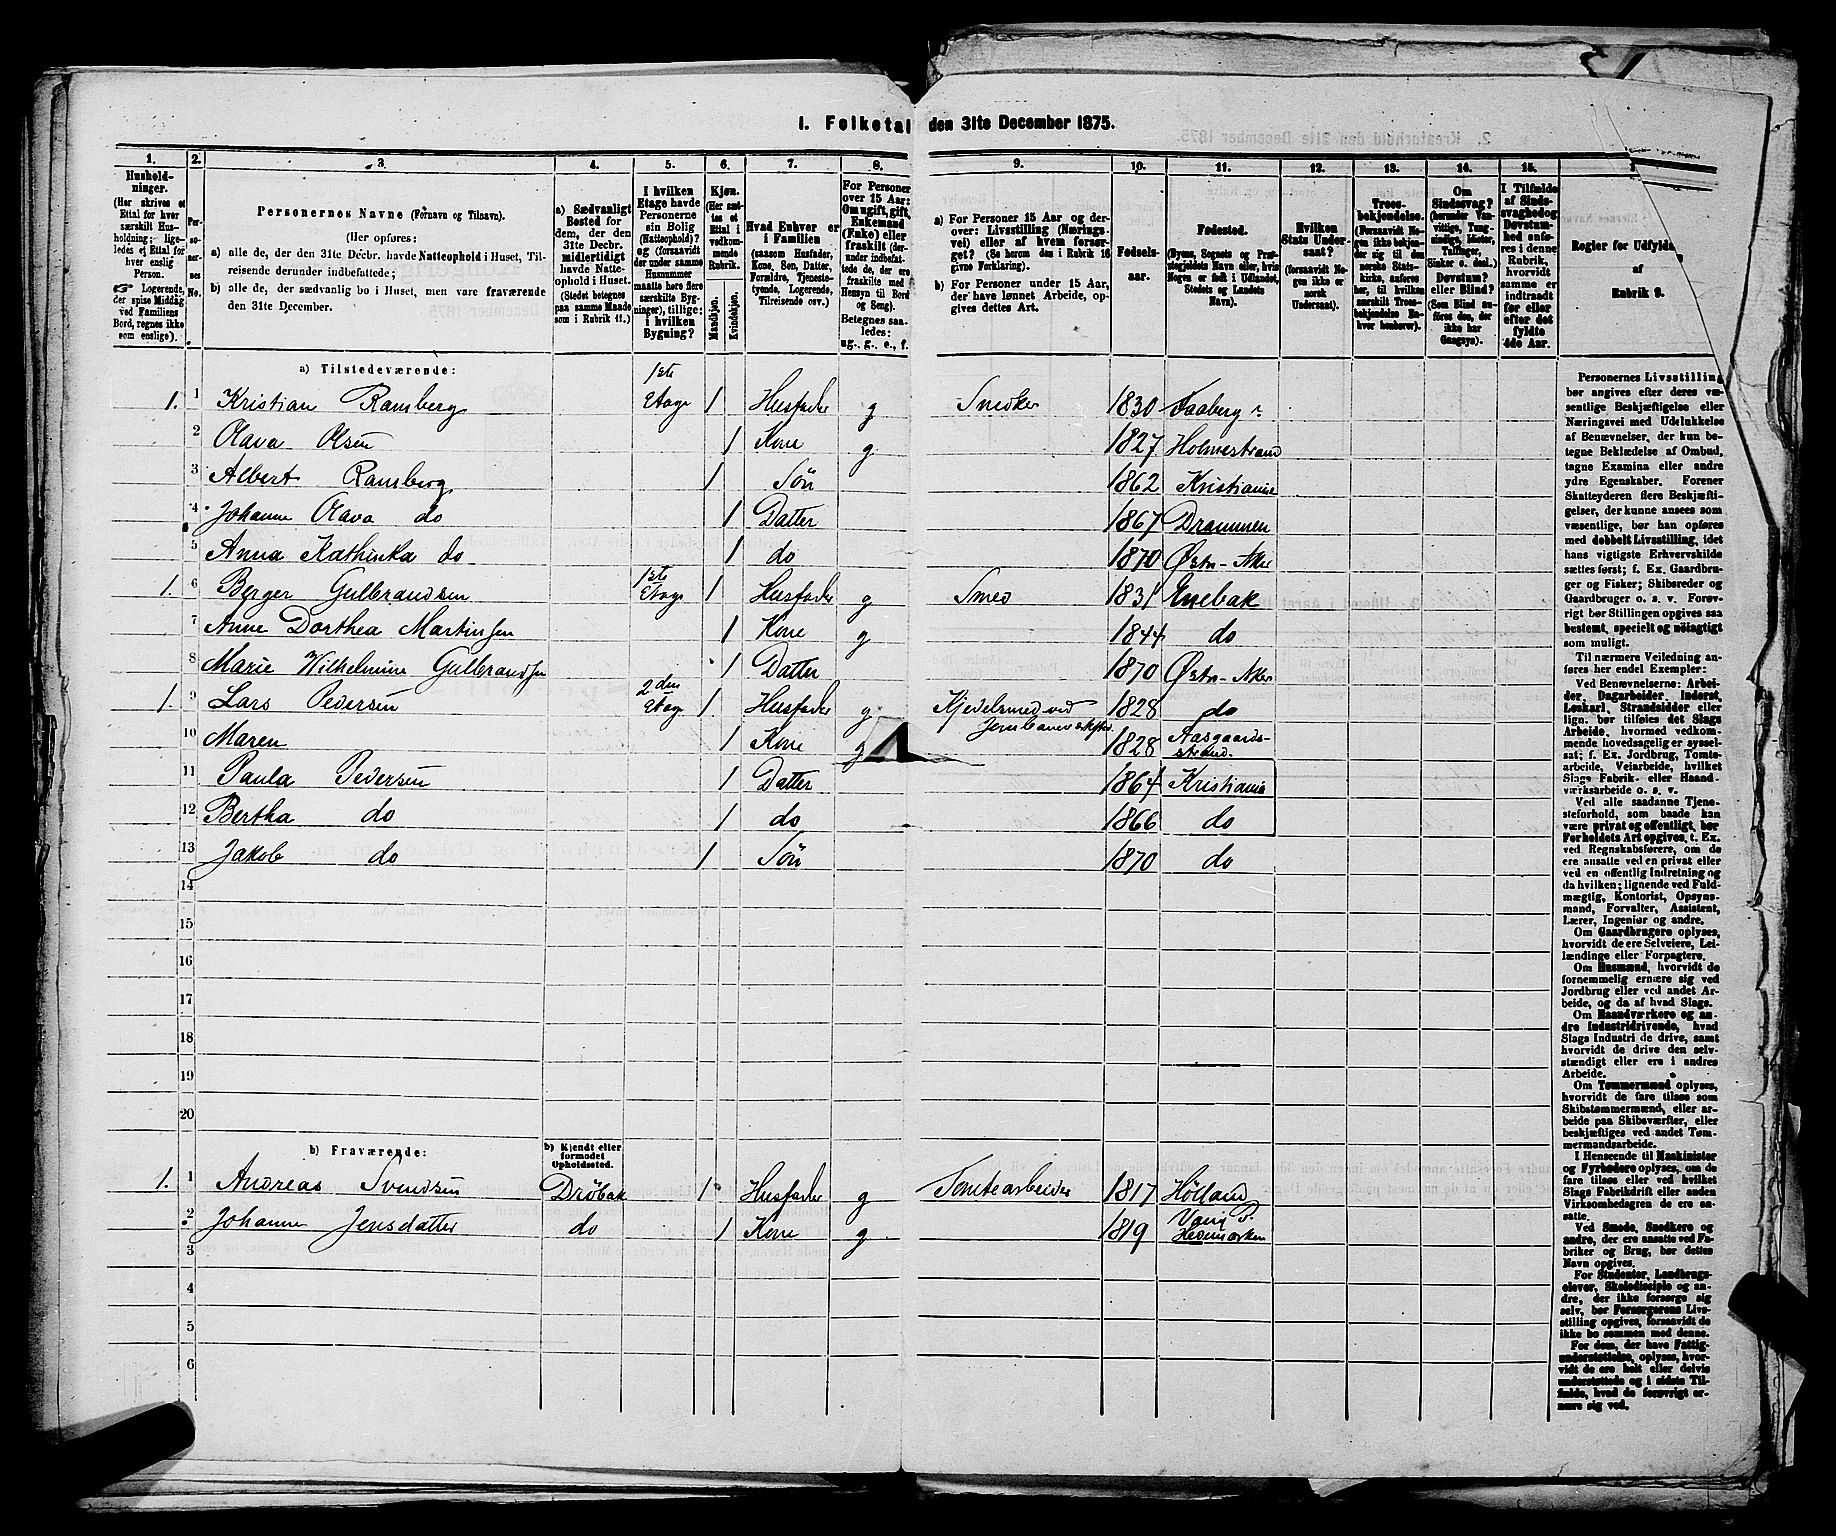 1. Folketal den 31te December 1875.
1. 2. 3. 4. 5. 6. 7. 8. 9. 10. 11. 12. 13. 14. 15.
Husholdninger. (Her skrives et Ettal for hver særskilt Husholdning; ligeledes et Ettal for hver enslig Person. Logerende, der spise Middag ved Familiens Bord, regnes ikke som enslige).
Personernes No.
Personernes Navne (Fornavn og Tilnavn).
(Her opføres:
a) alle de, der den 31te Decbr. havde Natteophold i Huset, Tilreisende derunder indbefattede;
b) alle de, der sædvanlig bo i Huset, men vare fraværende den 31te December.
a) Sædvanligt Bosted for dem, der den 31te Decbr. midlertidigt havde Natteophold i Huset. (Stedet betegnes paa samme Maade som i Rubrik 11.)
I hvilken Etage havde Personerne sin Bolig (Natteophold)? og (forsaavidt der under samme Husnummer maatte høre flere særskilte Bygninger), tillige: i hvilken Bygning?
Kjøn. (Her sættes et Ettal i vedkommende Rubrik.
Mandkjøn. Kvindekjøn.
Hvad Enhver er i Familien (saasom Husfader, Kone, Søn, Datter, Forældre, Tjenestetyende, Logerende, Tilreisende osv.)
For Personer over 15 Aar: Om ugift, gift, Enkemand (Enke) eller fraskilt (derunder indbefattede de, der ere fraskilte med Hensyn til Bord og Seng). Betegnes saaledes: ug., g., e., f.
a) For Personer 15 Aar og derover: Livsstilling (Næringsvei) eller af hvem forsørget? (Se herom den i Rubrik 16 givne Forklaring).
b) For Personer under 15 Aar, der have lønnet Arbeide, opgives dettes Art.
Fødselsaar.
Fødested. (Byens, Sognets og Præstegjeldets Navn eller, hvis Nogen er født i Udlandet, Stedets og Landets Navn).
Hvilken Stats Undersaat? (forsaavidt Nogen ikke er norsk Undersaat).
Troesbekjendelse. (Forsaavidt Nogen ikke bekjender sig til den norske Statskirke, anføres her, til hvilket særskilt Troesbekjendelse Enhver henhører).
Om Sindssvag? (herunder Vanvittige, Tungsindige, Idioter, Tullinger, Sinker o. desl.) Døvstum? eller Blind? (Som Blind anføres den, der ikke har Gangsyn).
I Tilfælde af Sindssvaghed og Døvstumhed anføres i denne Rubrik, hvorvidt samme er indtraadt før eller efter det fyldte 4de Aar.
Regler for Udfyldn
af
Rubrik 9.
a) Tilstedeværende:
1. 1 Kristian Ramberg 1ste Etage 1 Husfader g Snedker 1830 Faaberg
2 Olava Olsen 1 Kone g 1827 Holmestrand
3 Albert Ramberg 1 Søn 1862 Kristiania
4 Johanne Olava do 1 Datter 1867 Drammen
5 Anna Kathinka do 1 do 1870 Østre-Aker
1. 6 Berger Gulbrandsen 1ste Etage 1 Husfader g Smed 1831 Enebak
7 Anne Dorthea Martinsen 1 Kone g 1844 do
8 Marie Wilhelmine Gulbrandsen 1 Datter 1870 Østre-Aker
1. 9 Lars Pedersen 2den Etage 1 Husfader g Kjedelsmed ved 1828 do
10 Maren 1 Kone g 1828 Aasgaards-strand.
11 Paula Pedersen 1 Datter 1864 Kristiania
12 Bertha do 1 do 1866 do
13 Jakob do 1 Søn 1870 do
14
15
16
17
18
19
20
b) Fraværende:
b) Kjendt eller formodet Opholdssted.
1. 1 Andreas Svendsen Drøbak 1 Husfader g Tomtearbeider 1817 Høland
2 Johanne Jensdatter do 1 Kone g 1819 Vang P. Hedmarken
3
4
5
6
Personernes Livsstilling
bør angives efter deres væsentlige
Beskjæftigelse eller
Næringsvei med Udelukkelse
af Benævnelser, der kun betegne
Beklædelse af Ombud,
tagne Examina eller andre
ydre Egenskaber. Forener
Skatteyderen flere Beskjæftigelser,
der kunne ansees som
væsentlige, bør han opføres
med dobbelt Livsstilling, idet
hans vigtigste Erhvervskilde
sættes først; f. Ex. Gaardbruger
og Fisker; Skibsreder og
Gaardbruger o. s. v. Forøvrigt
bør Stillingen opgives saa
bestemt, specielt og nøiagtigt
som muligt.
Til nærmere Veiledning anføres
her endel Exempler:
Ved Benævnelserne: Arbeider,
Dagarbeider, Inderst,
Løskarl, Strandsidder eller
lign. bør tilføies det Slags
Arbeide, hvormed vedkommende
hovedsagelig er sysselsat;
f. Ex. Jordbrug, Tomtearbeide,
Veiarbeide, hvilket
Slags Fabrik- eller Haandværksarbeide
o. s. v.
Ved alle saadanne Tjenesteforhold,
som baade kan
være privat og offentligt, bør
Forholdets Art opgives, t. Ex.
ved Regnskabsførere, om de
ere ansatte ved en privat eller
ved en offentlig Indretning og
da hvilken; lignende ved Fuldmægtig,
Kontorist, Opsynsmand,
Forvalter, Assistent,
Lærer, Ingeniør og andre.
Om Gaardbrugere oplyses,
hvorvidt de ere Selveiere, Leilændinge
eller Forpagtere.
Om Husmænd, hvorvidt de
fornemmelig ernære sig ved
Jordbrug eller ved andet Arbeide,
og da af hvad Slags.
Om Haandværkere og andre
Industridrivende, hvad
Slags Industri de drive, samt
hvorvidt de drive den selvstændigt
eller ere i andres
Arbeide.
Om Tømmermænd oplyses,
hvorvidt de fare tilsøs som
Skibstømmermænd, eller arbeide
paa Skibsværfter, eller
beskjæftiges ved andet Tømmermandsarbeide.
I Henseende til Maskinister
og Fyrbødere oplyses, om de
fare tilsøs eller ved hvilket
Slags Fabrikdrift eller anden
Virksomhedsgren de ere ansatte.
Ved Smede, Snedkere og
andre, der ere ansatte ved Fabriker
og Brug, bør dettes
Navn opgives.
For Studenter, Landbrugselever,
Skoledisciple og andre,
der ikke forsørge sig
selv, bør Forsørgerens Livsstilling
opgives, forsaavidt de
ikke bo sammen med denne.
For dem, der have Fattigunderstøttelse,
oplyses, hvorvidt
de ere helt eller delvis
understøttede og i sidste Tilfælde,
hvad de forøvrigt ernære
sig ved.